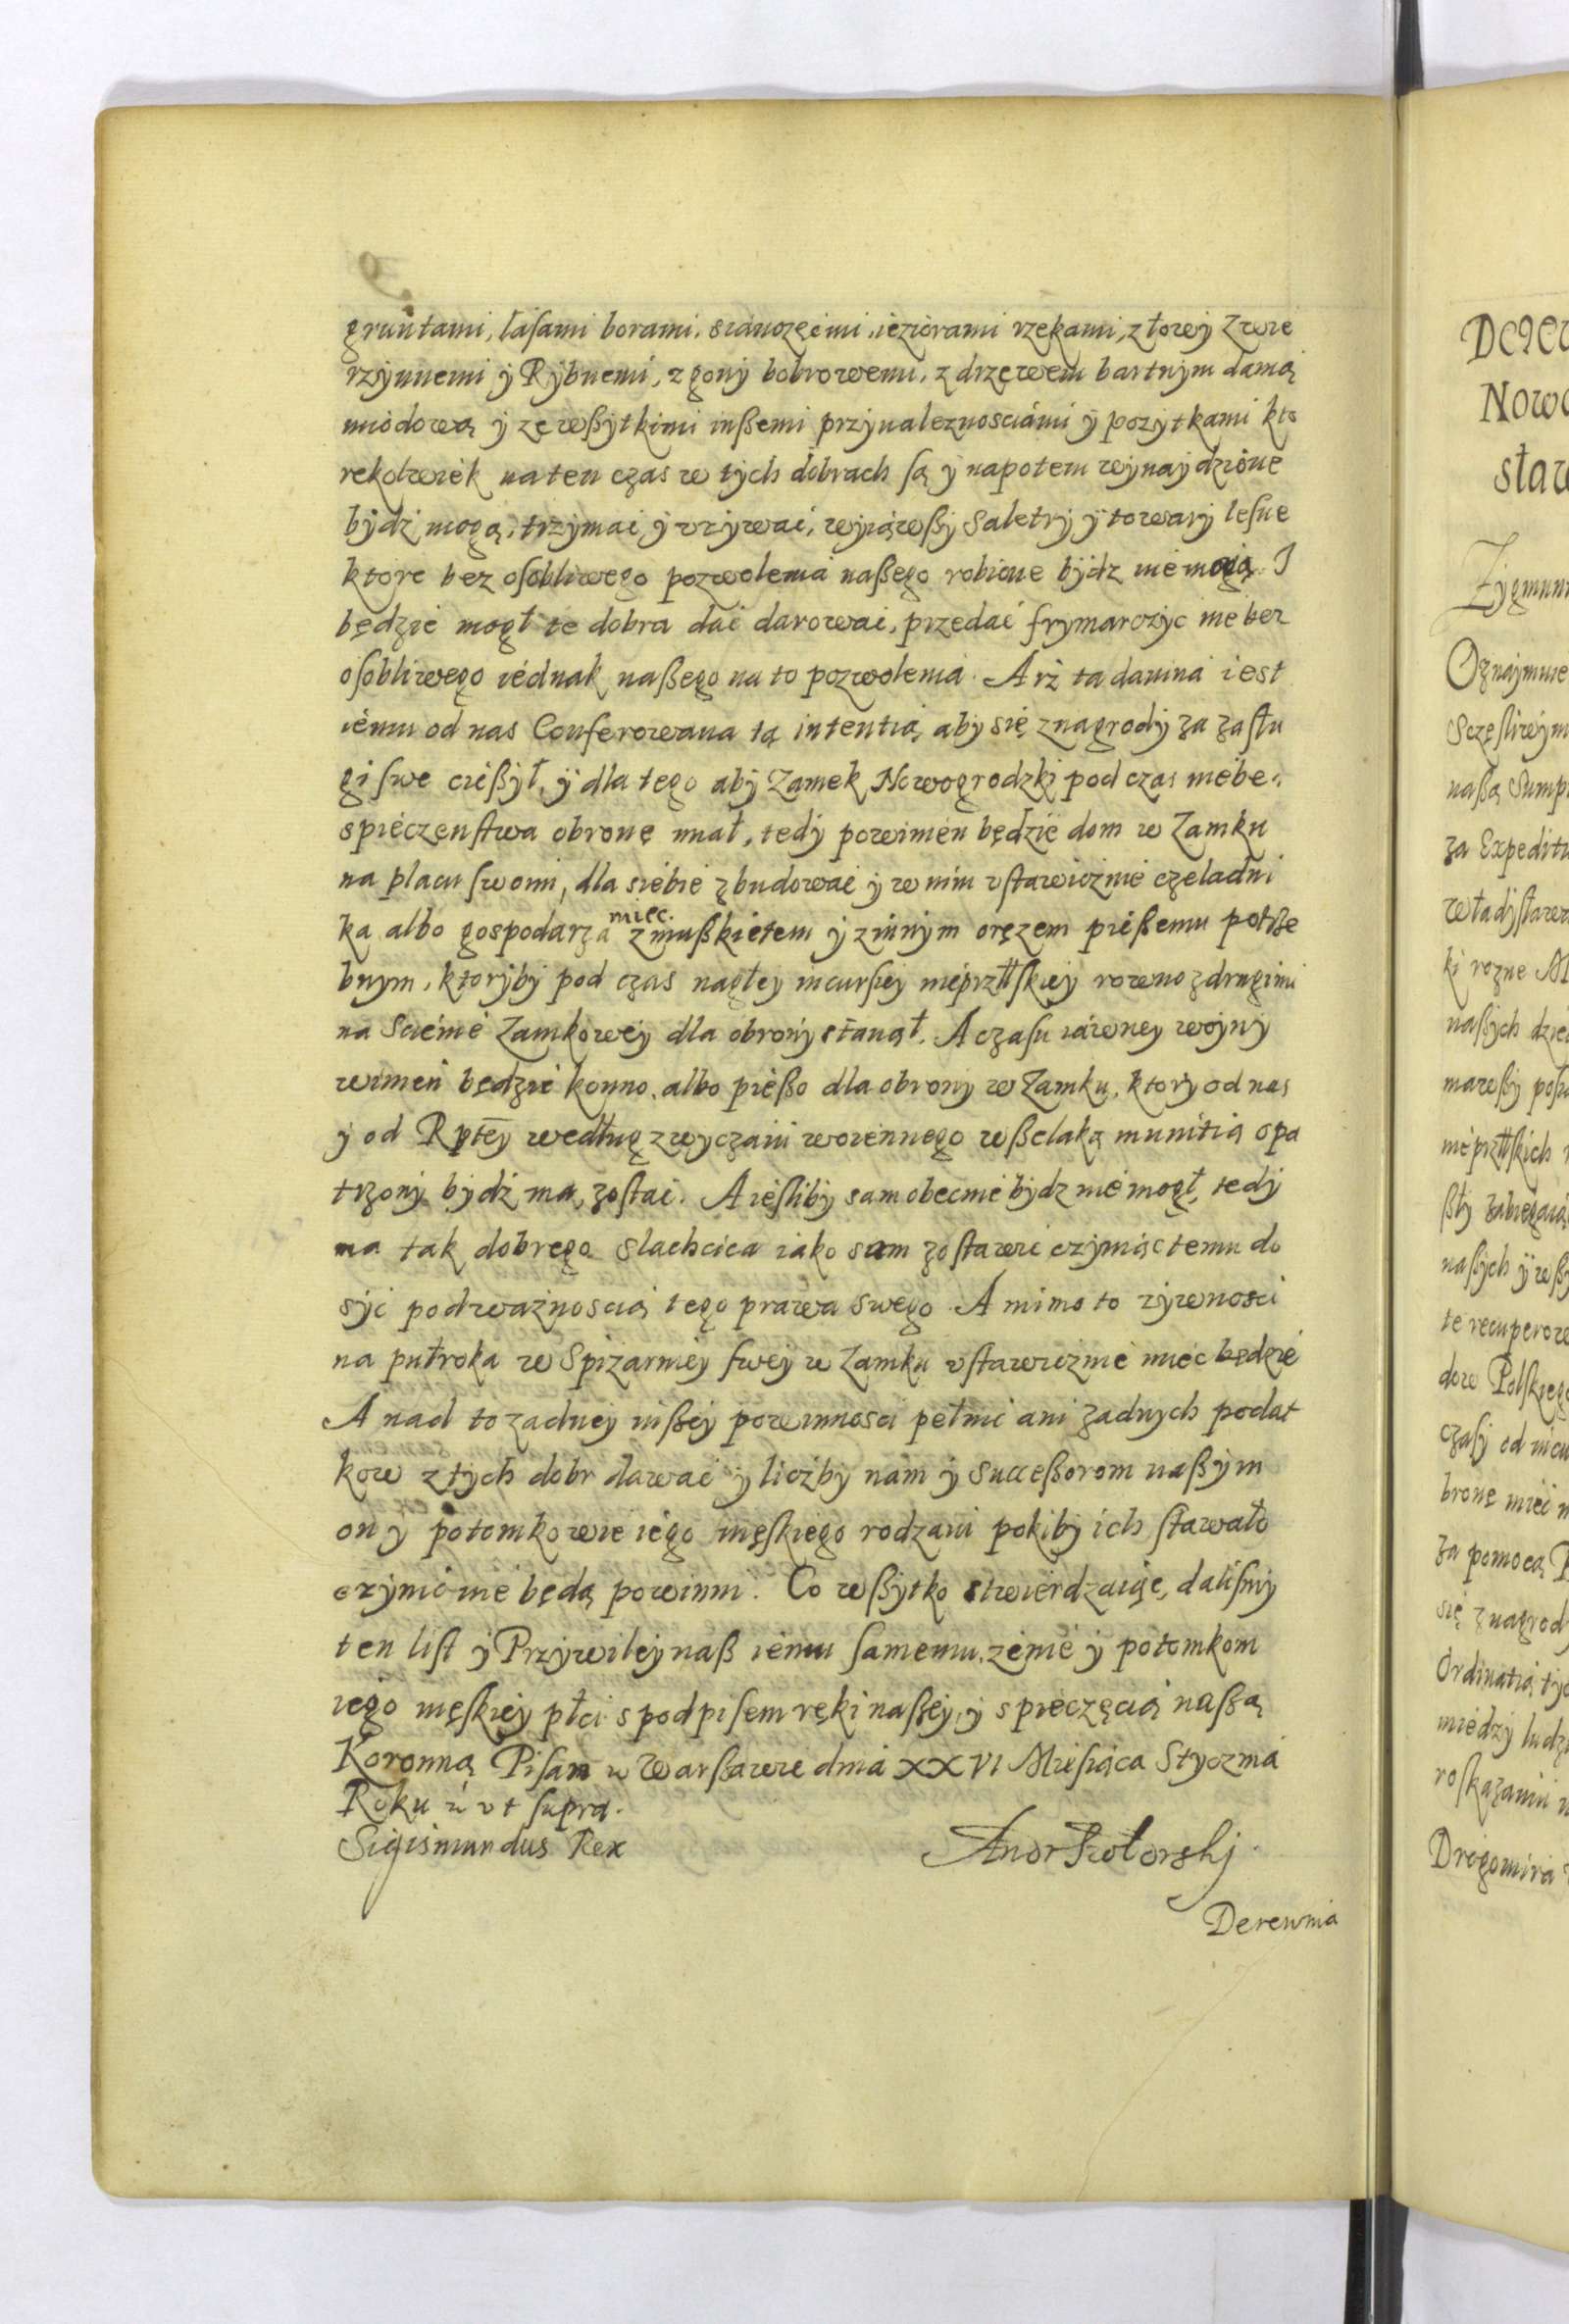 gruntami, lasami borami, sianozęćmi, ieziorami rzekami, z łowy Zwie
rzynnemi y Rybnemi, z gony bobrowemi, z drzęwem bartnym danią
miodową y zę wßytkimi inßemi przynaleznosciámi y pozytkami kto
rekolwiek na ten czas w tych dobrach są y napotem wynaydzione
bydź mogą, trzymać y vzywać, wyiąwßy Saletry y towary lesne
ktore bez osobliwego pozwolenia naßego robione bydz nie mogą. I
będzie mogł te dobra dać darować, przedać frymarczyc nie bez
osobliwego iednak naßego na to pozwolenia. A iż ta danina iest
iemu od nas Conferowana tą intentią aby się z nagrody za zasłu
gi swe cießył, y dla tego aby Zamek Nowogrodzki pod czas niebe-
spieczenstwa obronę miał, tedy powinien będzie dom w Zamku
na placu swoim, dla siebie zbudować y w nim vstawicznie czeladni
ka albo gospodarza miec. z mußkietem y z innym oręzem pießemu potrze
bnym, ktoryby pod czas nagłey incursiey nieprzllskiey rowno z drugimi
na Scienie Zamkowey dla obrony stanął. A czasu iawney woyny
winien będzie konno, albo pießo dla obrony w Zamku, ktory od nas
y od Rptey według zwyczaiu woiennego wßelaką munitią opa
trzony bydź ma, zostać. A iesliby sam obecnie bydz nie mogł, tedy
na tak dobrego slachcica iako sam zostawić czyniąc temu do
syć pod ważnoscią tego prawa swego. A mimo to zywnosci
na puł roka w Spizarniey swey w Zamku vstawicznie miec będzie
A nad to zadney inßey powinnosci pełnić ani zadnych podat
kow z tych dobr dawać y liczby nam y Succeßorom naßym
on y potomkowie iego męskiego rodzaiu pokiby ich stawało
czynić nie będą powinni. Co wßytko stwierdzaiąc, dalismy
ten list y Przywiley naß iemu samemu, zenie y potomkom
iego męskiey płci s podpisem ręki naßey, y s pieczęcią naßą
Koronną Pisan w Warßawie dnia XXVI Miesiąca Stycznia
Roku ut supra.
Sigismundus Rex
Derewnia
DEREW
NOWO
sław
Zygmun
Oznaymuie
Sczęsliwym
naßą Sump
za Expeditu
władysława
ki rozne M
naßych dzie
nieprzllskich
ßły zabiegaią
naßych y wßy
te recuperow
dow Polskiego
czasy od nieu
bronę mieć n
za pomocą P
się z nagrody
Ordinatią tyc
miedzy ludz
roskazaniu